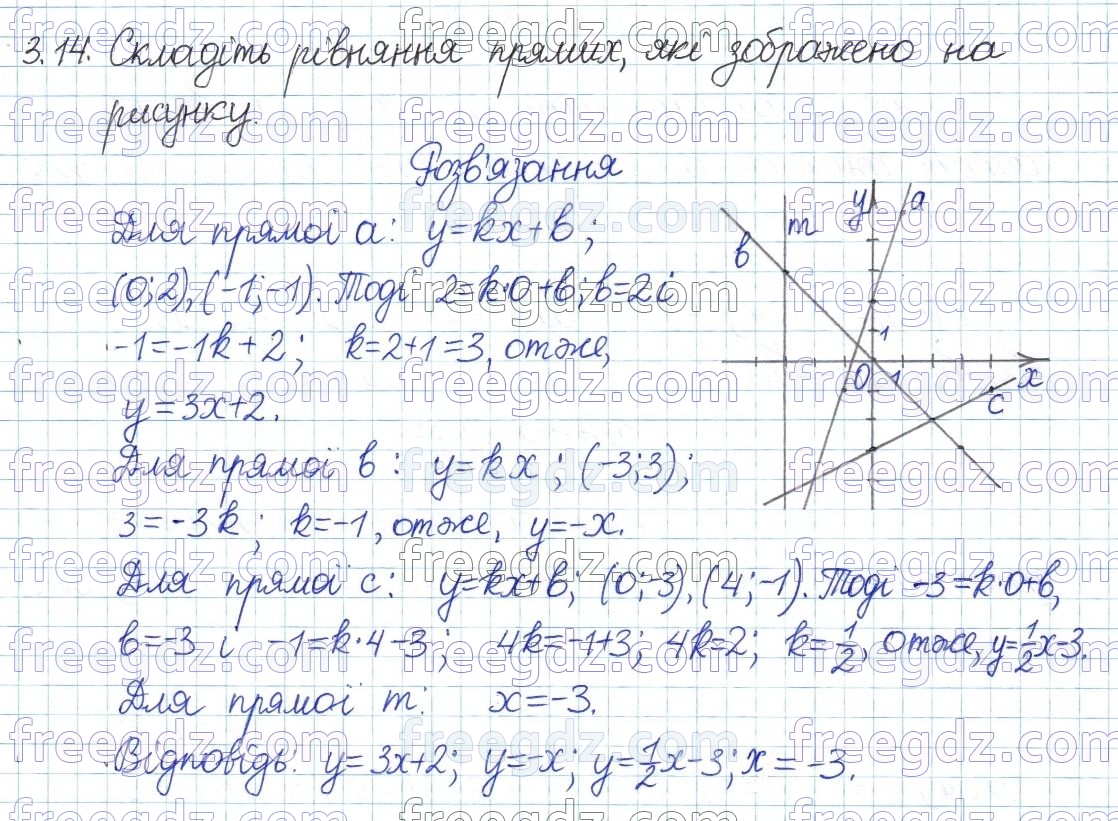 3.14. Складіть рівняння прямих, які зображено на
рисунку.
Розв'язання
Для прямої a: y=kx+b;
(0;2), (-1;-1). Тоді 2=k·0+b; b=2 і
-1=-1k+2; k=2+1=3, отже,
y=3x+2.
Для прямої b: y=kx; (-3;3);
3=-3k; k=-1, отже, y=-x.
Для прямої c: y=kx+b; (0;-3), (4;-1). Тоді -3=k·0+b,
b=-3 і -1=k·4-3; 4k=-1+3; 4k=2; k=1/2, отже, y=1/2x-3.
Для прямої m: x=-3.
Відповідь: y=3x+2; y=-x; y=1/2x-3; x=-3.
y
a
m
b
1
0
1
x
c
freegdz.com